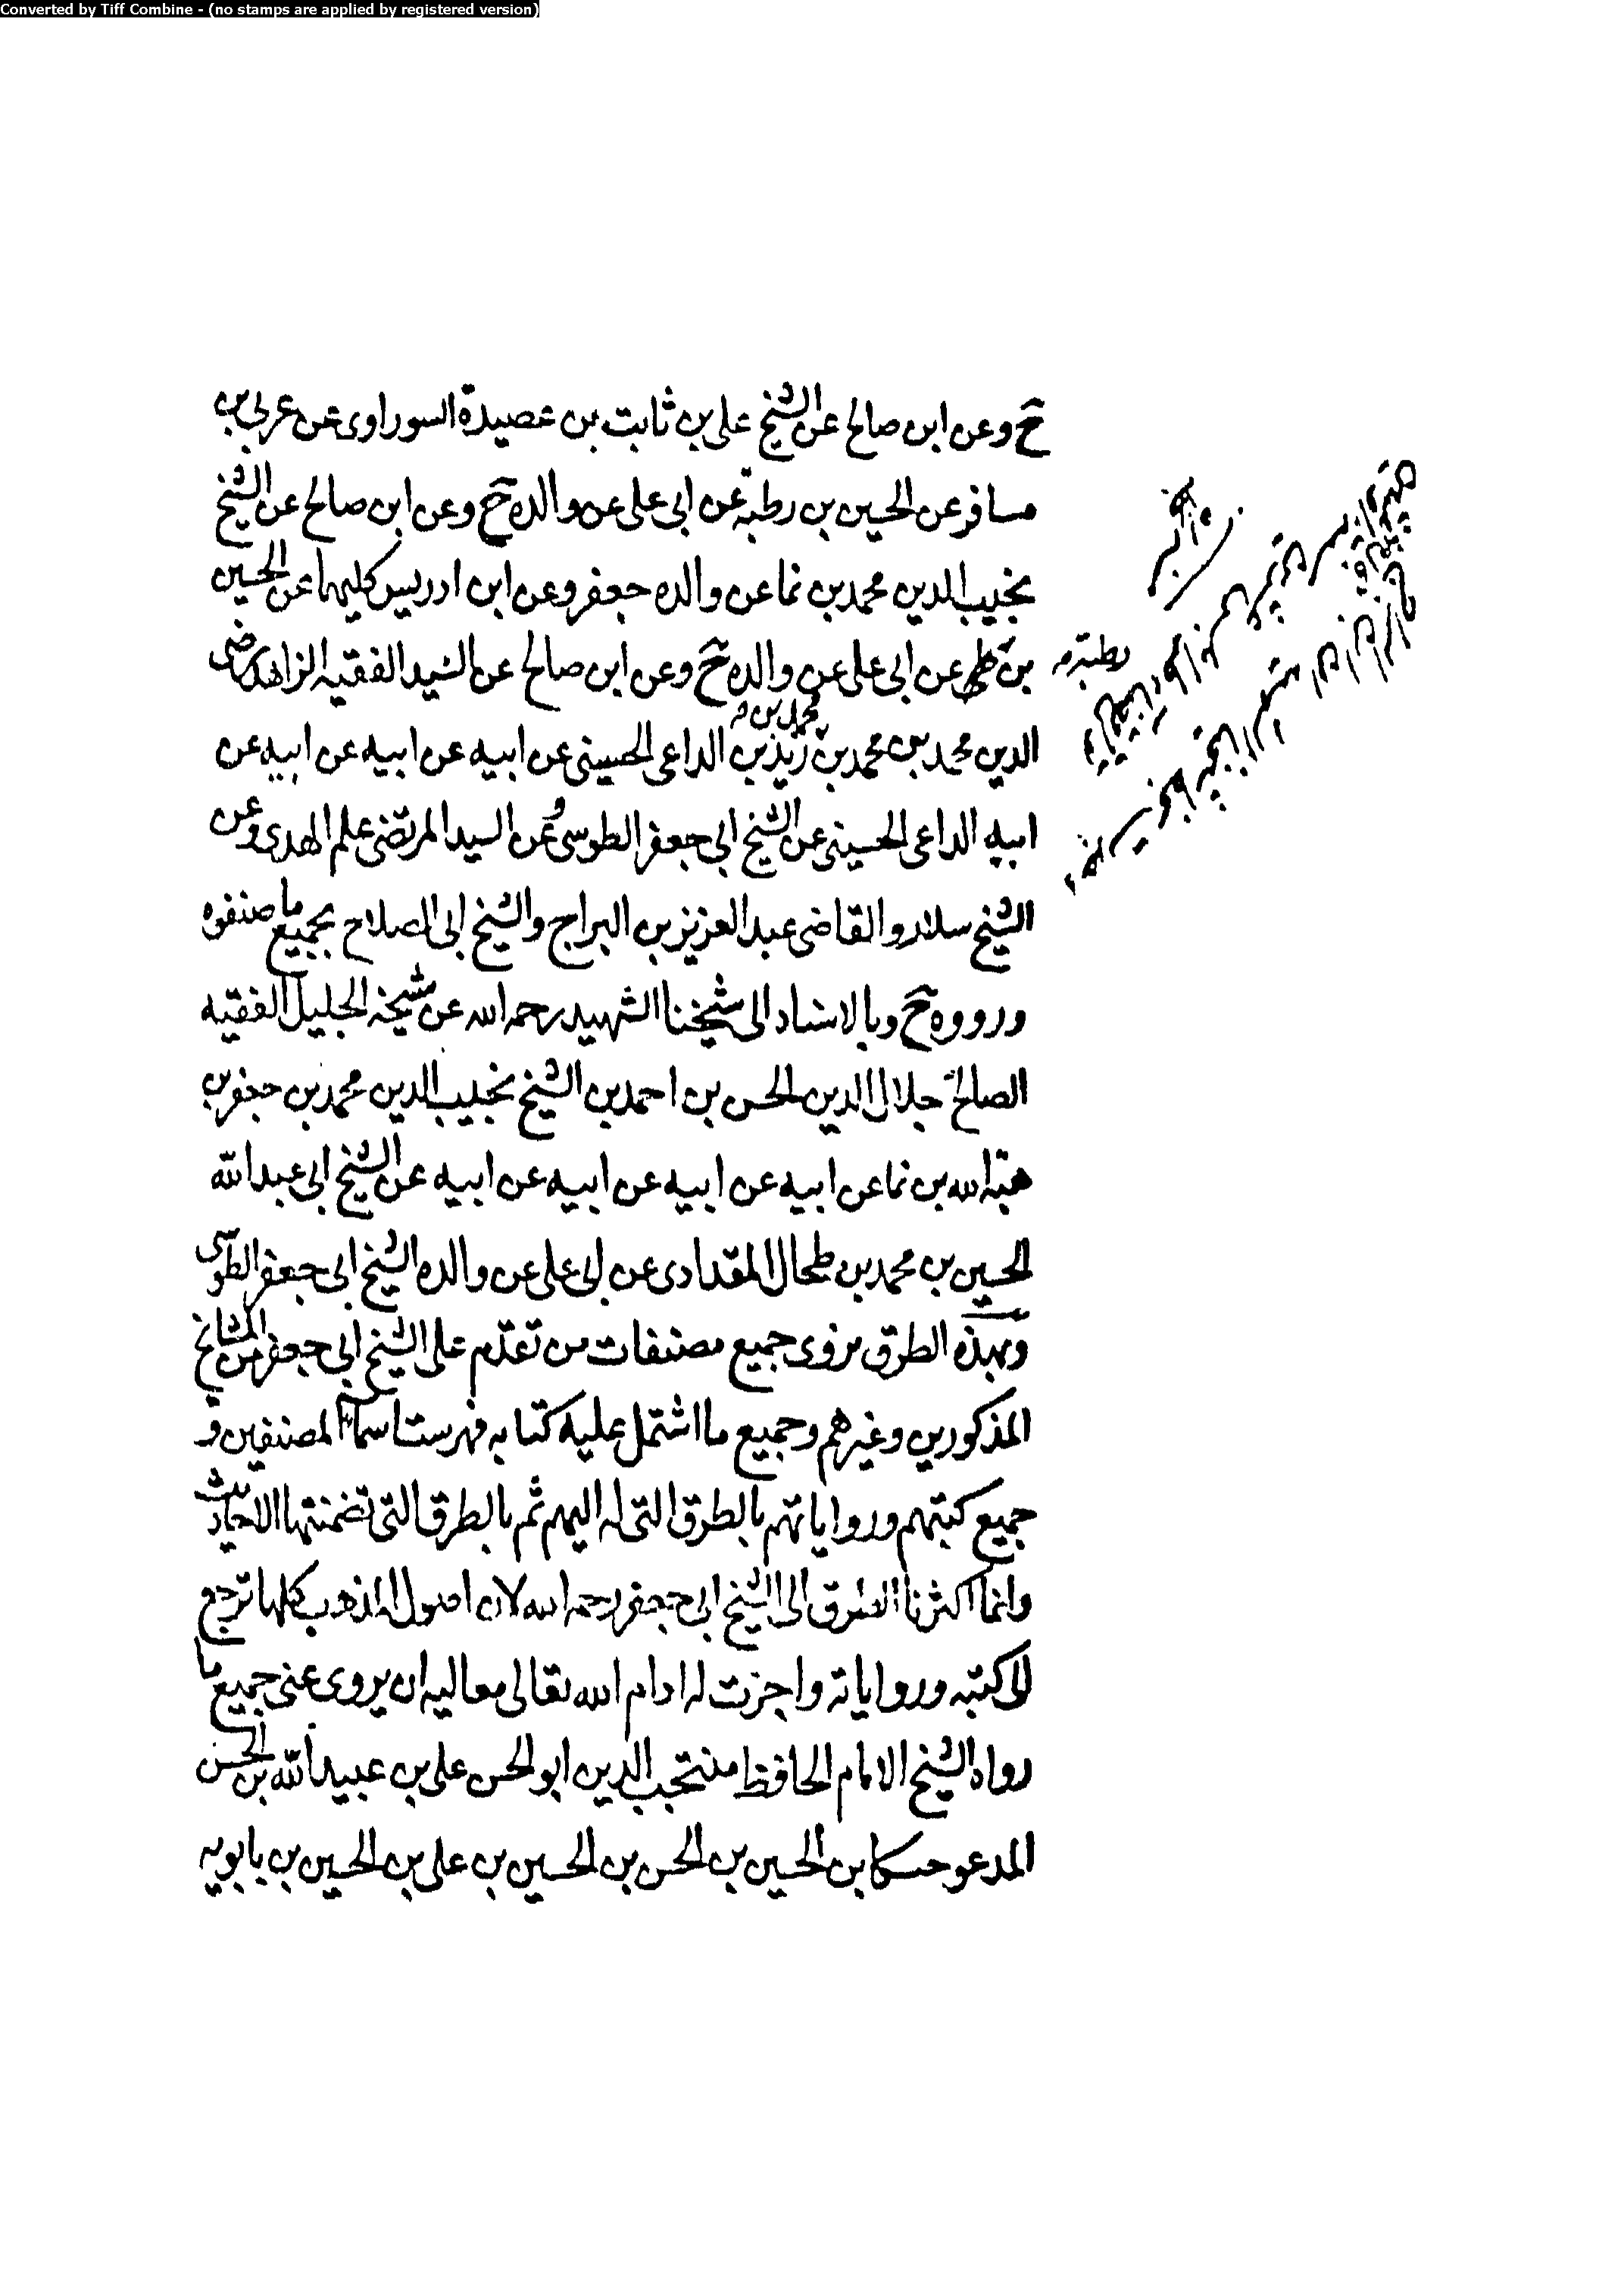 Converted by Tiff Combine - (no stamps are applied by registered version)
ح وعن ابن صالح عن الشيخ على بن ثابت بن عصيدة السوراوى عن عربى بن
مسافر عن الحسين بن رطبة عن ابى على عن والده ح وعن ابن صالح عن الشيخ
نجيب الدين محمد بن نما عن والده جعفر وعن ابن ادريس كليهما عن الحسين
بن عن ابى على عن والده ح وعن ابن صالح عن السيد الفقيه الزاهد رضى
رطبة
محمد بن
الدين محمد بن محمد بن زيد بن الداعى الحسينى عن ابيه عن ابيه عن ابيه عن
ابيه الداعى الحسينى عن الشيخ ابى جعفر الطوسى وعن السيد المرتضى علم الهدى وعن
الشيخ سلار والقاضى عبد العزيز بن البراج والشيخ ابى الصلاح بجميع ما صنفوه
ورووه ح وبالاسناد الى شيخنا الشهيد رحمه الله عن شيخه الجليل الفقيه
الصالح جلال الدين الحسن بن احمد بن الشيخ نجيب الدين محمد بن جعفر بن
هبة الله بن نما عن ابيه عن ابيه عن ابيه عن ابيه عن الشيخ ابى عبد الله
الحسين بن محمد بن طحال المقدادى عن ابى على عن والده الشيخ ابى جعفر الطوسى
وبهذه الطرق نروى جميع مصنفات من تقدم على الشيخ ابى جعفر من المشايخ
المذكورين وغيرهم وجميع ما اشتمل عليه كتابه فهرست اسماء المصنفين و
جميع كتبهم ورواياتهم بالطرق التى له اليهم ثم بالطرق التى تضمنتها الاحاديث
وانما اكثرنا الطرق الى الشيخ ابى جعفر رحمه الله لان اصول المذهب كلها ترجع
الى كتبه ورواياته واجزت له ادام الله تعالى معاليه ان يروى عنى جميع ما
رواه الشيخ الامام الحافظ منتجب الدين ابو الحسن على بن عبيد الله بن الحسن
المدعو حسكا بن الحسين بن الحسن بن الحسين بن على بن الحسين بن بابويه